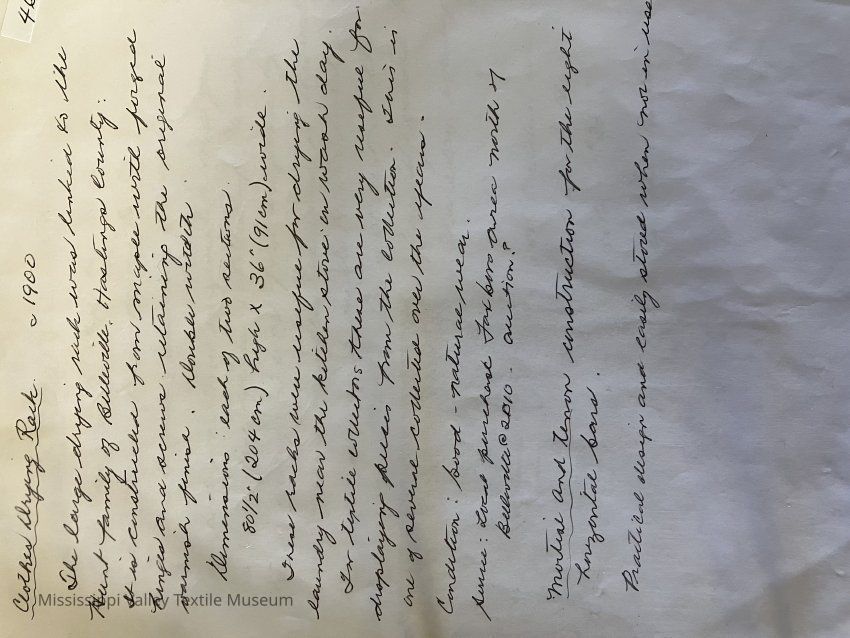 46
Clothes Drying Rack. ~ 1900
The large drying rack was linked to the
family of Belleville, Hastings County.
It is constructed from maple with forged
hinges and screws retaining the original
varnish finish. Double width.
Dimensions: each of two sections.
80½" (204 cm) high x 36" (91 cm) wide.
These racks were useful for drying the
laundry near the kitchen stove on wash day.
For textile collectors these are very useful for
displaying pieces from the collection. This is
one of several collected over the years.
Condition: Good - natural wear.
Source: Local purchase Foxboro area north of
Belleville @ 2010. auction?
Mortise and tenon construction for the eight
horizontal bars.
Practical design and easily stored when not in use
Mississippi Valley Textile Museum